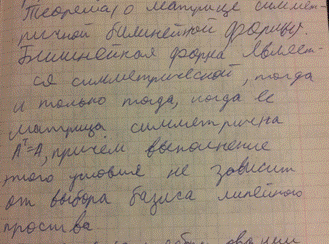 Теорема о матрице симмет-
ричной билинейной формы.
Билинейная форма являет-
ся симметрической, тогда
и только тогда, когда ее
матрица симметрична
Aᵀ=A, причём выполнение
этого условия не зависит
от выбора базиса линейного
проства